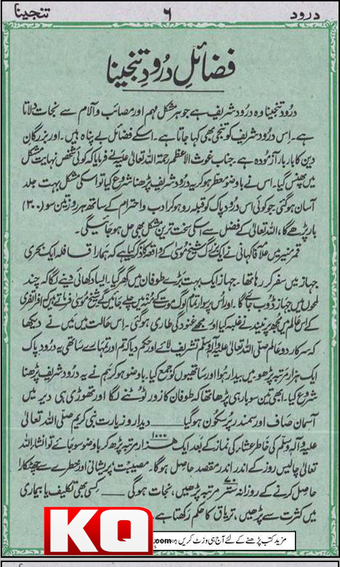 درود ۶ تنجینا
فضائلِ درودِ تنجینا
درُودِ تنجینا وہ درُود شریف ہے جو ہر مشکل مہم اور مصائب و آلام سے نجات دلاتا
ہے۔ اس درُود شریف کو تنجی بھی کہا جاتا ہے۔ اسکے فضائل بے پناہ ہیں۔ اور بزرگان
دین کا بارہا آزمودہ ہے۔ جناب غوث الاعظم رحمۃ اللہ تعالیٰ علیہ نے فرمایا کہ کوئی شخص نہایت مشکل
میں پھنس گیا۔ اس نے باوضو معطر ہو کر یہ درود شریف پڑھنا شروع کیا تو اسکی مشکل بہت جلد
آسان ہو گئی جو کوئی اس درود پاک کو قبلہ رو ہو کر ادب و احترام کے ساتھ ہر روز تین سو (۳۰۰)
بار پڑھے گا۔ اللہ تعالیٰ کے فضل سے اسکی سخت ترین مشکل بھی حل ہو جائیگی۔
قمر منیر میں علامہ فاکہانی نے ایک شیخ موسیٰ کا واقعہ ذکر کیا ہے کہ ہمارا قافلہ ایک بحری
جہاز میں سفر کر رہا تھا۔ جہاز ایک بہت بڑے طوفان میں گھر گیا۔ ایسا دکھائی دینے لگا کہ چند
لمحوں میں جہاز ڈوب جائے گا۔ اور اس پر سوار تمام لوگ موت کے منہ میں چلے جائیں گے شیخ موسیٰ فرماتے ہیں کہ افراتفری
کے اس عالم میں مجھ پر نیند نے غلبہ کیا اور مجھے غنودگی طاری ہو گئی۔ اس حالت میں میں نے دیکھا
کہ سرکار دو عالم صلی اللہ تعالیٰ علیہ وسلم تشریف لائے اور حکم دیا کہ تم اور تمہارے ساتھی یہ درود پاک
ایک ہزار مرتبہ پڑھو میں بیدار ہوا اور ساتھیوں کو جمع کیا وضو کر کے ہم نے یہ درود شریف پڑھنا شروع
کیا۔ ابھی تین سو باری پڑھا تھا کہ طوفان کا زور ٹوٹنے لگا اور تھوڑی ہی دیر میں
آسمان صاف اور سمندر پُر سکون ہو گیا ــــ دیدار و زیارت نبی کریم صلی اللہ تعالیٰ
علیہ وآلہٖ وسلم کی خاطر عشاء کی نماز کے بعد ایک ہزار ۱۰۰۰ مرتبہ پڑھ کر باوضو سو جائے تو انشاء اللہ
تعالیٰ چالیس روز کے اندر اندر مقصد حاصل ہو گا۔ مصیبت پریشانی اور خطرے سے چھٹکارا
حاصل کرنے کے روزانہ ستّر مرتبہ پڑھیں، نجات ہو گی ــــ کسی بھی تکلیف یا بیماری
میں کثرت سے پڑھیں، تریاق کا حکم رکھتا ہے
KQ
مزید کتب پڑھنے کے لئے آج ہی وزٹ کریں